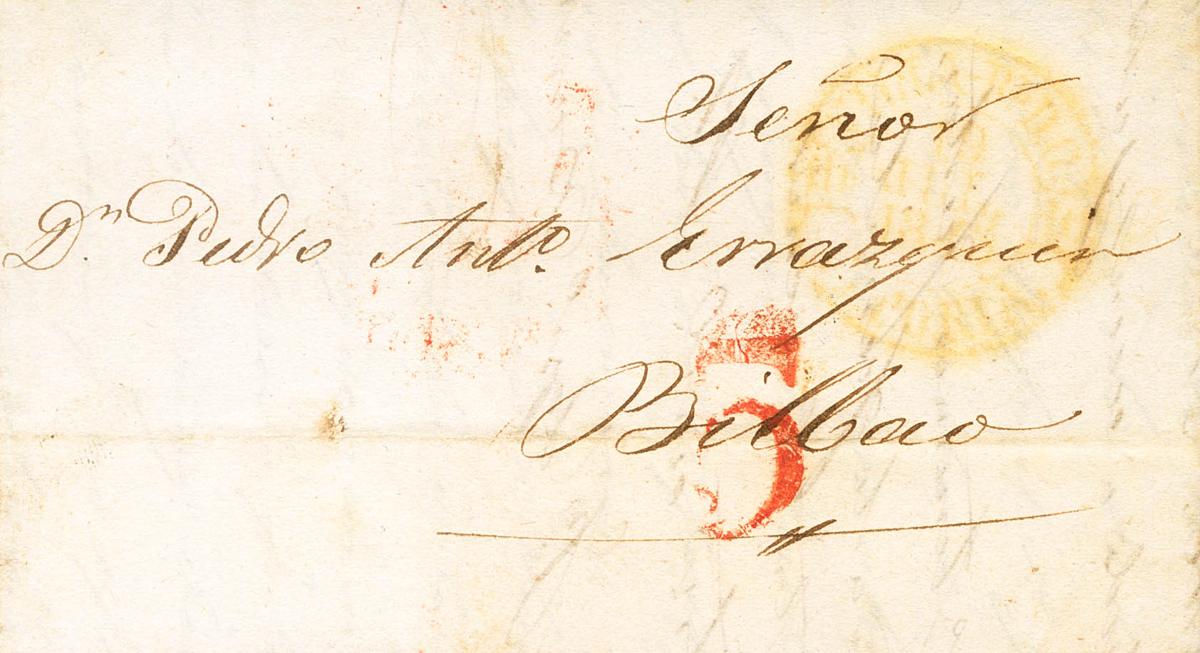 Señor
Dn. Pedro Anto. Errazquin
Bilbao
5